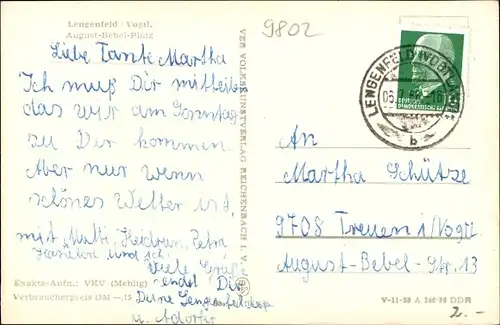 Lengenfeld / Vogtl.
August-Bebel-Platz
9802
Liebe Tante Martha
Ich muß Dir mitteilen
das wir am Sonntag
zu Dir kommen
Aber nur wenn
schönes Wetter ist.
mit Mutti, Heidrun, Petra
und ich
Viele Grüße
sendet Dir
Deine
u. Adorfer
Exakta-Aufn.: VKV (Mehlig)
Verbraucherpreis DM —,15
VEB VOLKSKUNSTVERLAG REICHENBACH I. V.
LENGENFELD (VOGTL)
b
DEUTSCHE
DEMOKRATISCHE
An
Martha Schütze
9708 Treuen i/Vogtl.
August-Bebel-Str. 13
DDR
2.-